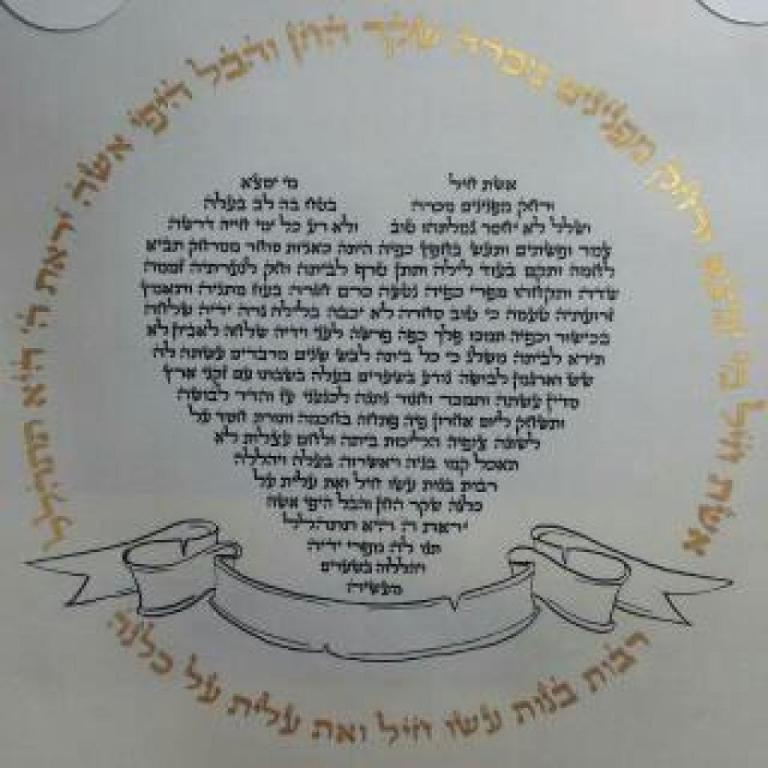 אשת חיל מי ימצא ורחק מפנינים מכרה שקר החן והבל היפי אשה יראת ה' היא תתהלל
אשת חיל מי ימצא
ורחק מפנינים מכרה בטח בה לב בעלה
ושלל לא יחסר גמלתהו טוב ולא רע כל ימי חייה דרשה
צמר ופשתים ותעש בחפץ כפיה היתה כאניות סוחר ממרחק תביא
לחמה ותקם בעוד לילה ותתן טרף לביתה וחק לנערתיה זממה
שדה ותקחהו מפרי כפיה נטעה כרם חגרה בעוז מתניה ותאמץ
זרועתיה טעמה כי טוב סחרה לא יכבה בלילה נרה ידיה שלחה
בכישור וכפיה תמכו פלך כפה פרשה לעני וידיה שלחה לאביון לא
תירא לביתה משלג כי כל ביתה לבש שנים מרבדים עשתה לה
שש וארגמן לבושה נודע בשערים בעלה בשבתו עם זקני ארץ
סדין עשתה ותמכר וחגור נתנה לכנעני עז והדר לבושה
ותשחק ליום אחרון פיה פתחה בחכמה ותורת חסד על
לשונה צופיה הליכות ביתה ולחם עצלות לא
תאכל קמו בניה ויאשרוה בעלה ויהללה
רבות בנות עשו חיל ואת עלית על
כלנה שקר החן והבל היפי אשה
יראת ה' היא תתהלל
תנו לה מפרי ידיה
ויהללוה בשערים
מעשיה
רבות בנות עשו חיל ואת עלית על כלנה